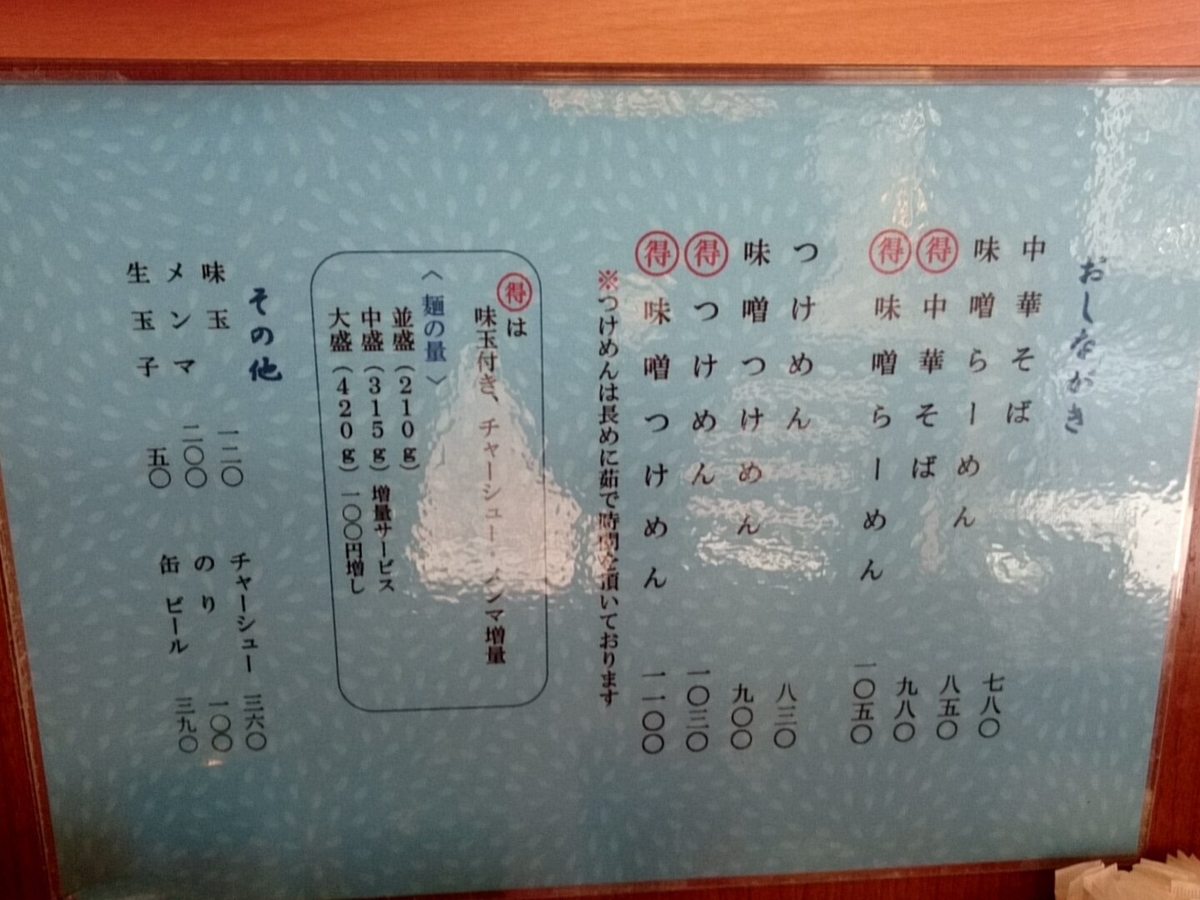 おしながき
中華そば 七八〇
味噌らーめん 八五〇
得 中華そば 九八〇
得 味噌らーめん 一〇五〇
つけめん 八三〇
味噌つけめん 九〇〇
得 つけめん 一〇三〇
得 味噌つけめん 一一〇〇
※つけめんは長めに茹で時間を頂いております
得は
味玉付き、チャーシュー・メンマ増量
〈麺の量〉
並盛(210g)
中盛(315g) 増量サービス
大盛(420g) 一〇〇円増し
その他
味玉 一二〇
メンマ 二〇〇
生玉子 五〇
チャーシュー 三六〇
のり 一〇〇
缶ビール 三九〇